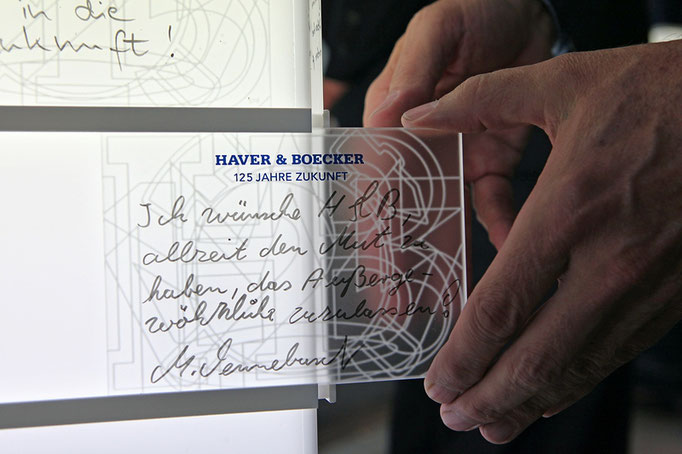 in die
Zukunft!
HAVER & BOECKER
125 JAHRE ZUKUNFT
Ich wünsche H&B,
allzeit den Mut zu
haben, das Außerge-
wöhnliche zuzulassen!